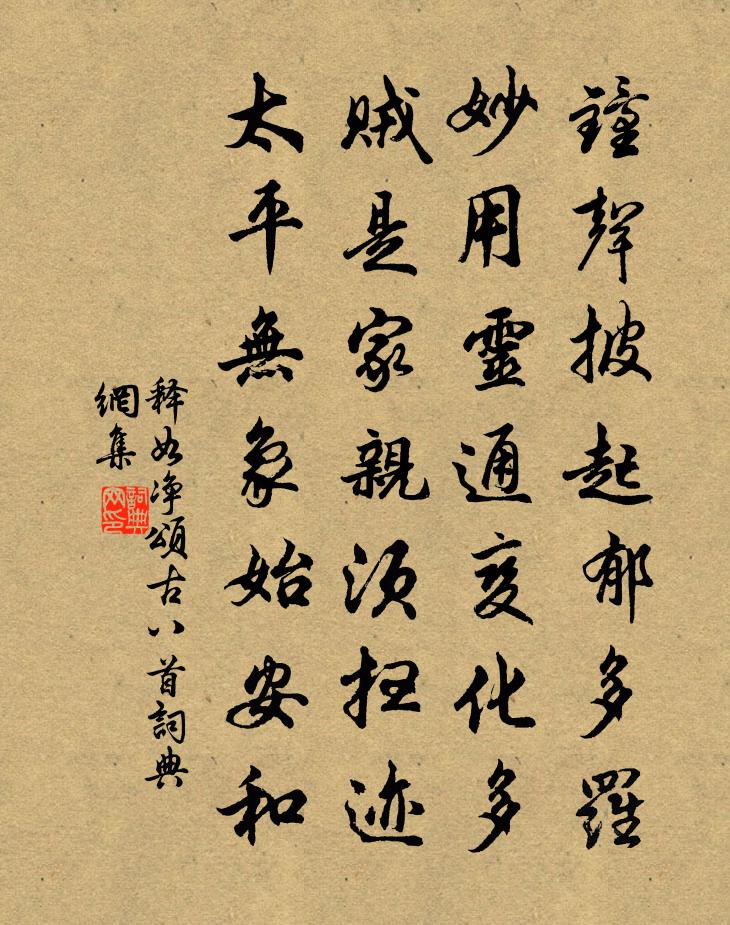 鐘聲披起郁多羅
妙用靈通变化多
賊是家親須扫迹
太平無象始安和
释如净頌古八首詞典
網集
詞典
网印